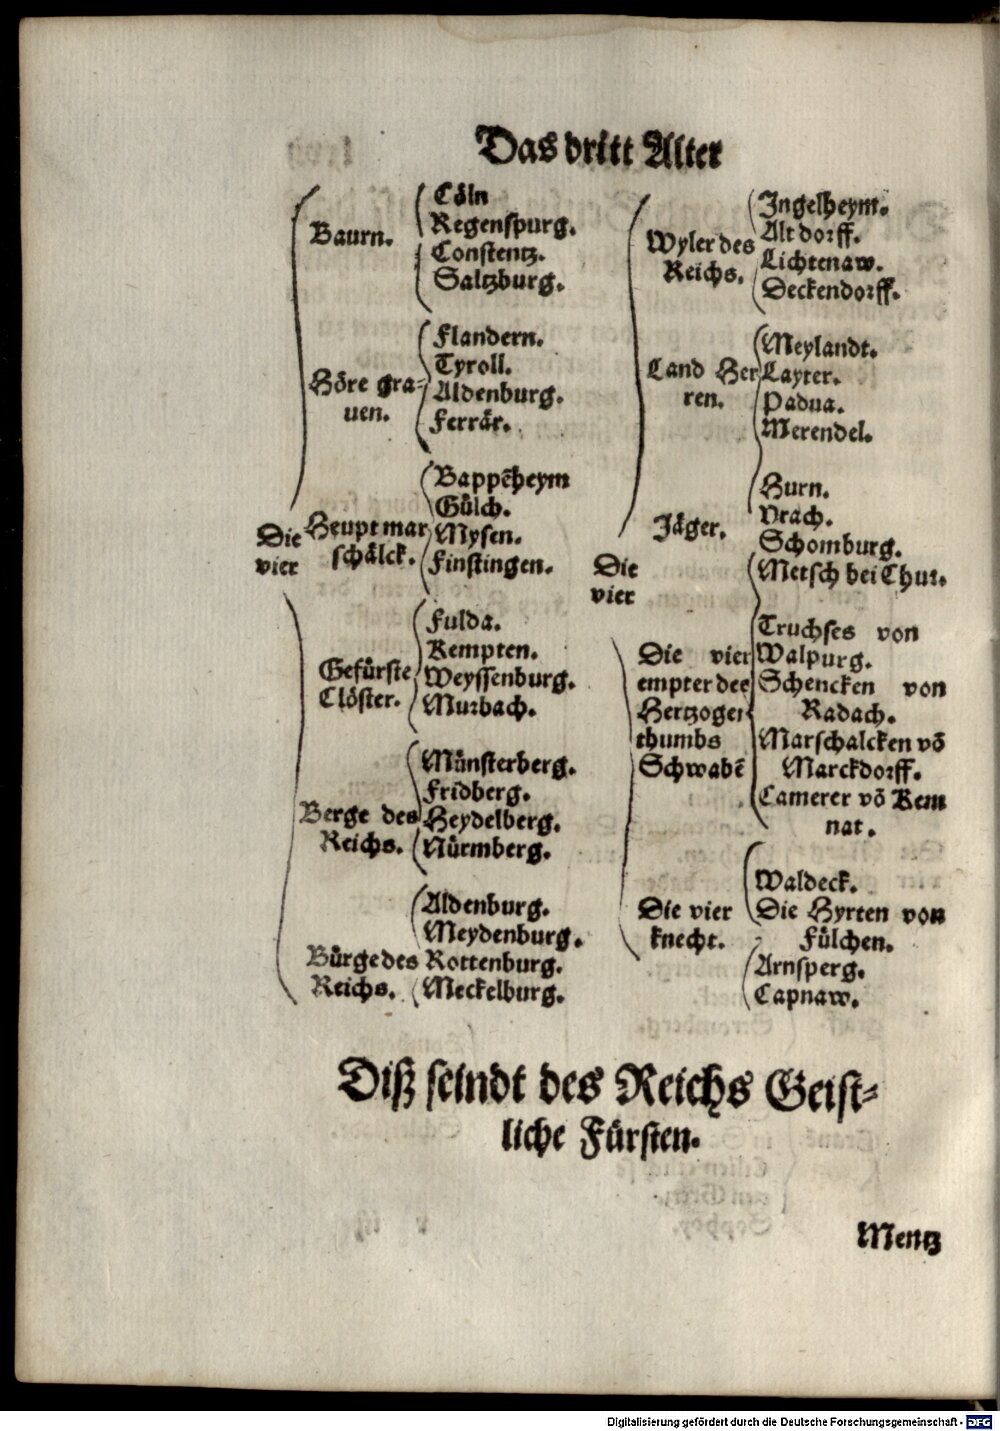 Das dritt Alter
Die
vier
Baurn.
Cöln
Regenspurg.
Constentz.
Saltzburg.
Höre gra⸗
uen.
Flandern.
Tyroll.
Aldenburg.
Ferrär.
Heupt mar
schälck.
Bappēheym
Gülch.
Mysen.
Finstingen.
Gefürste
Clöster.
Fulda.
Kempten.
Weyssenburg.
Murbach.
Berge des
Reichs.
Münsterberg.
Fridberg.
Heydelberg.
Nürmberg.
Bürge des
Reichs.
Aldenburg.
Meydenburg.
Rottenburg.
Meckelburg.
Die
vier
Wyler des
Reichs.
Ingelheym.
Alt dorff.
Lichtenaw.
Deckendorff.
Land Her
ren.
Meylandt.
Layter.
Padua.
Merendel.
Jäger.
Hurn.
Vrach.
Schomburg.
Metsch bei Chur.
Die vier
empter des
Hertzogen
thumbs
Schwabē
Truchses von
Walpurg.
Schencken von
Radach.
Marschalcken vō
Marckdorff.
Camerer vō Kem
nat.
Die vier
knecht.
Waldeck.
Die Hyrten von
Fülchen.
Arnsperg.
Capnaw.
Diß seindt des Reichs Geist⸗
liche Fürsten.
Mentz
Digitalisierung gefördert durch die Deutsche Forschungsgemeinschaft - DFG